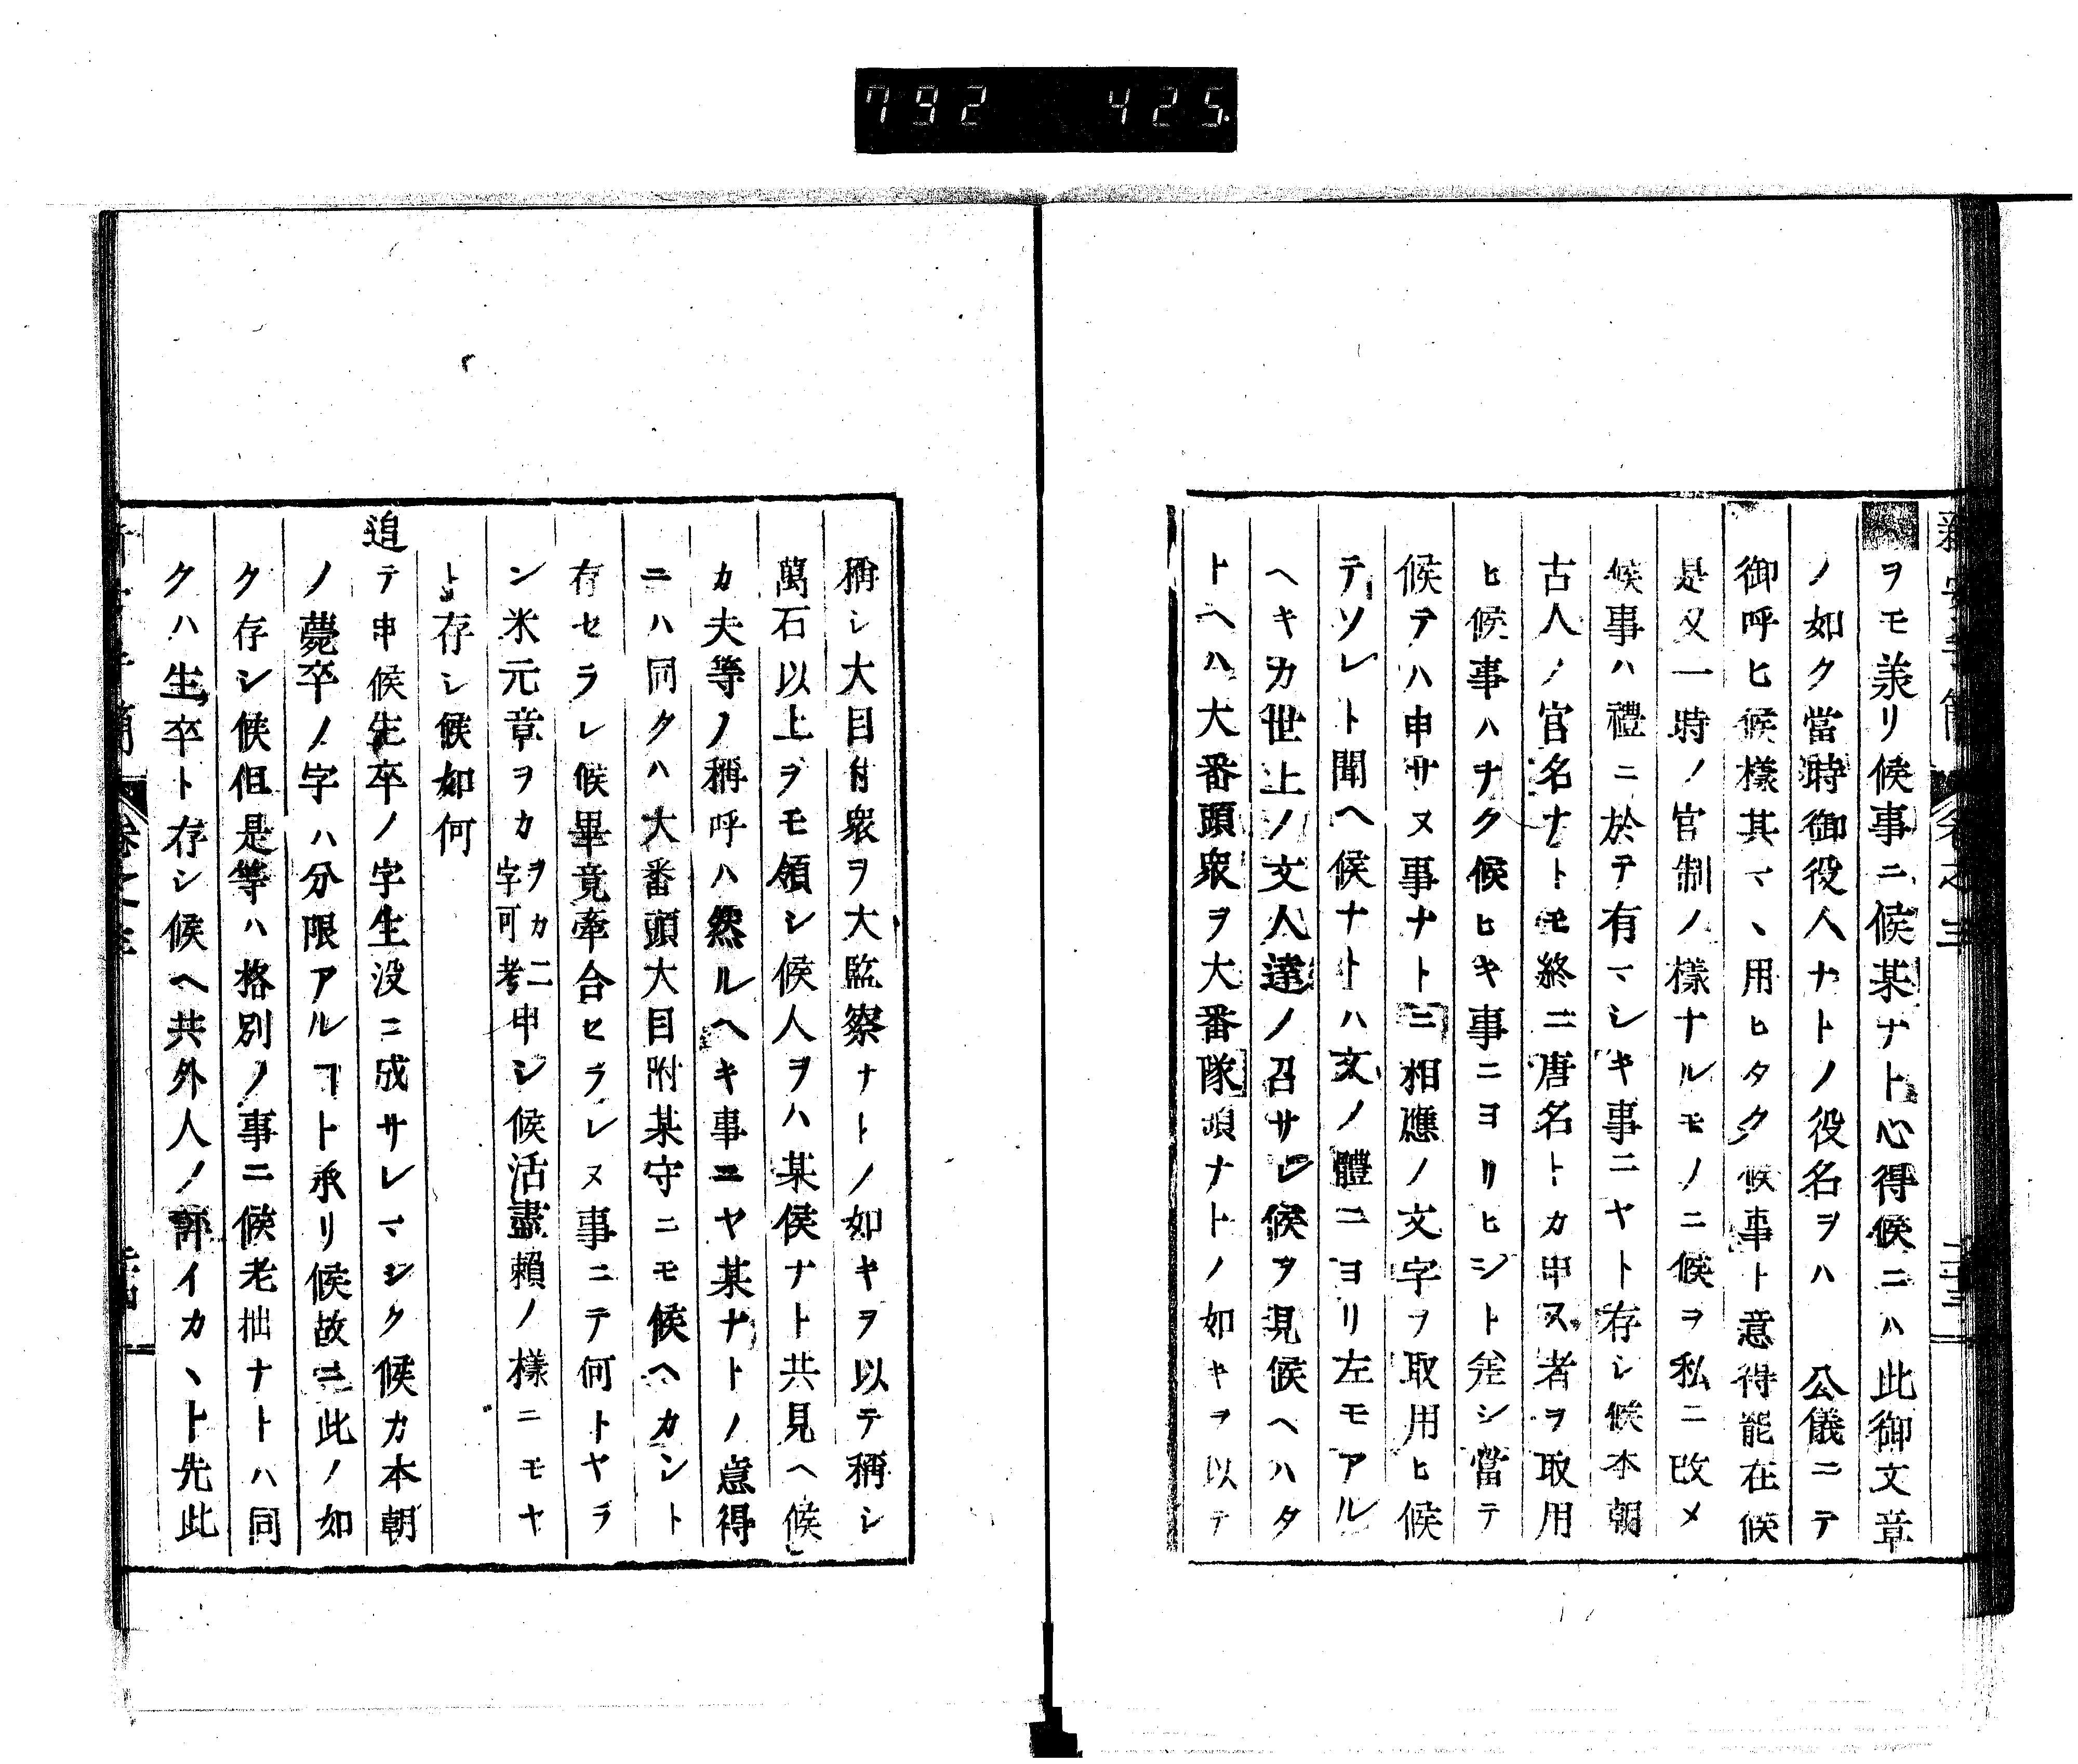 792 425
ヲモ羕リ候事ニ候某ナト心得候ニハ此御文章
ノ如ク當時御役人ナトノ役名ヲハ　公儀ニテ
御呼ヒ候樣其マヽ用ヒタク候事ト意得能在候
是又一時ノ官制ノ樣ナルモノニ候ヲ私ニ改メ
候事ハ禮ニ於テ有マシキ事ニヤト存シ候本朝
古人ノ官名ナトモ終ニ唐名トカ申ス者ヲ取用
ヒ候事ハナク候ヒキ事ニヨリヒシト差シ當テ
候テハ申サヌ事ナトニ相應ノ文字ヲ取用ヒ候
テソレト聞ヘ候ナトハ文ノ體ニヨリ左モアル
ヘキカ世上ノ文人達ノ召サレ候ヲ見候ヘハタ
トヘハ大番頭衆ヲ大番隊頭ナトノ如キヲ以テ
稱シ大目付衆ヲ大監察ナトノ如キヲ以テ稱シ
萬石以上ヲモ領シ候人ヲハ某侯ナト共見ヘ候
カ夫等ノ稱呼ハ然ルヘキ事ニヤ某ナトノ意得
ニハ同クハ大番頭大目附某守ニモ候ヘカント
存セラレ候畢竟牽合セラレヌ事ニテ何トヤラ
ン米元章ヲカヲカ二字可考申シ候活盡賴ノ樣ニモヤ
ト存シ候如何
追テ申候生卒ノ字生沒ニ成サレマシク候カ本朝
ノ薨卒ノ字ハ分限アルヿト承リ候故ニ此ノ如
ク存シ候但是等ハ格別ノ事ニ候老拙ナトハ同
クハ生卒ト存シ候ヘ共外人ノ評イカヽト先此
卷之三